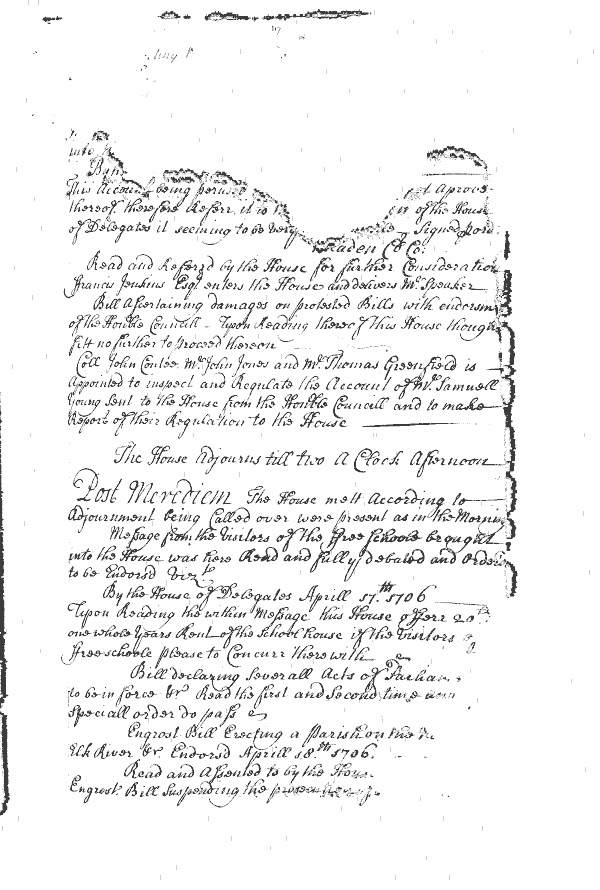 into
By
This Account being perused
et Aprove-
thereof therefore Referr it to
of the House
of Delegates it seeming to be very
Signed por:
aden Cl Co:
Read and Referrd by the House for further Consideration
Francis Jenkins Esqr enters the House and delivers Mr Speaker
Bill Ascertaining damages on protested Bills with endorsm
of the Honble Councill - Upon Reading thereof this House though
fitt no further to proceed thereon
Coll John Contee Mr John Jones and Mr Thomas Greenfield is
Appointed to inspect and Regulate the Account of Mr Samuell
Young Sent to the House from the Honble Councill and to make
Report of their Regulation to the House
The House Adjourns till two A Clock Afternoon
Post Merediem The House mett According to
Adjournment being Called over were present as in the Mornin
Message from the Visitors of the ffree Schoole brought
into the House was here Read and fully debated and Order
to be Endorsd Vizt
By the House of Delegates Aprill 17th 1706
Upon Reading the within Message this House offerr 20
one whole Years Rent of the School house if the Visitors
ffree schoole please to Concurr therewith
Bill declaring Severall Acts of Parliam
to be in force &c Read the first and Second time
speciall order do pass
Engrost Bill Erecting a Parish on the N
Elk River &c. Endorsd Aprill 18th 1706.
Read and Assented to by the House
Engrost Bill Suspending the prosecution